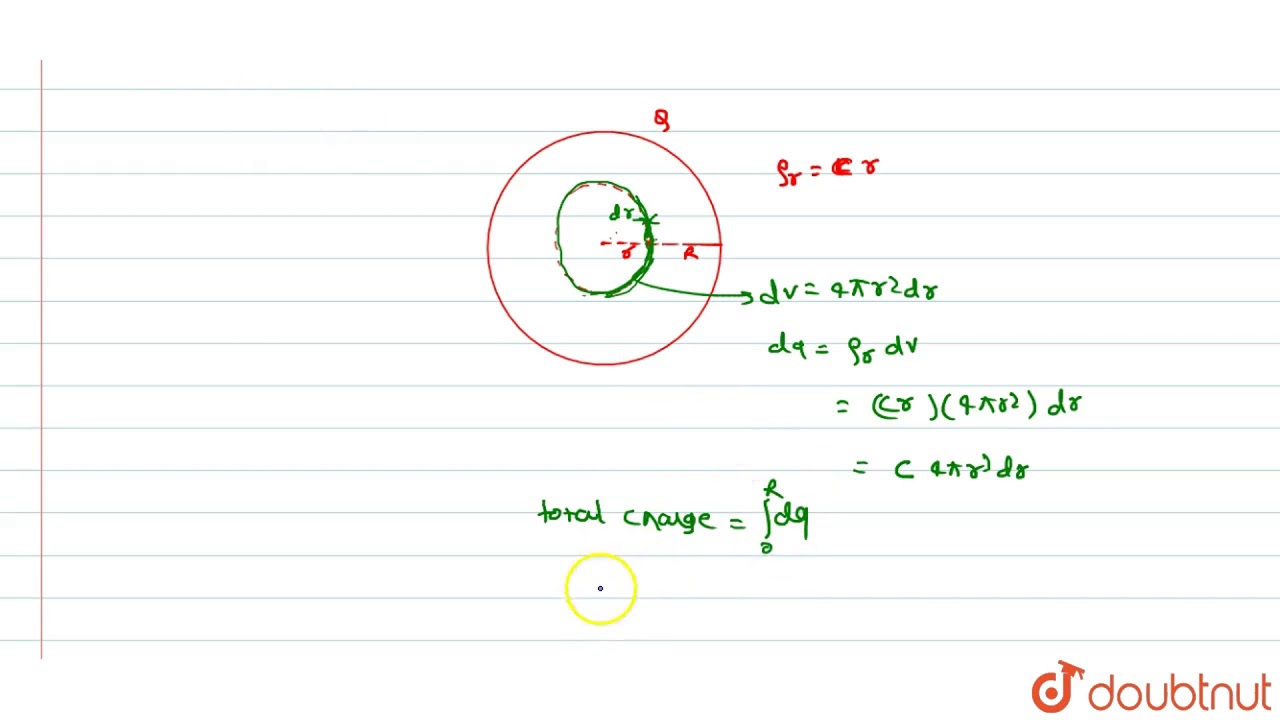 Q
ρr = C r
dr
r
R
dv = 4πr2dr
dq = ρr dv
= (Cr)(4πr2) dr
= C 4πr3dr
total charge = ∫0R dq
doubtnut